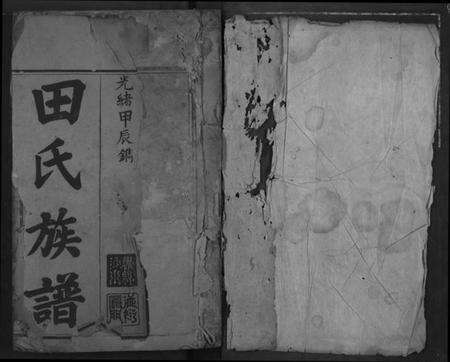 光緒甲辰鐫
田氏族譜